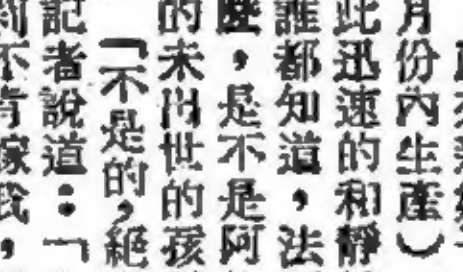 月份內生產）
此迅速的和靜
誰都知道，法
，是不是阿
的未出世的孩
「不是的，絕
記者說道：「
不肯嫁我，